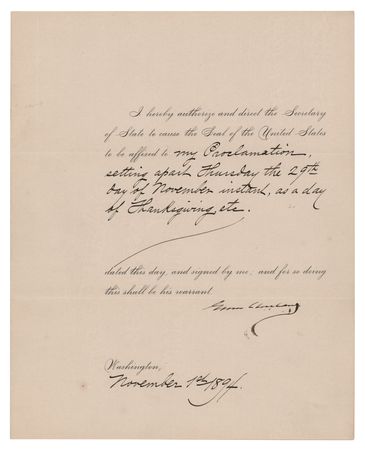 I hereby authorize and direct the Secretary
of State to cause the Seal of the United States
to be affixed to my Proclamation,
setting apart Thursday the 29th
day of November instant, as a day
of Thanksgiving etc.
dated this day, and signed by me; and for so doing
this shall be his warrant.
Grover Cleveland
Washington,
November 1st 1894.